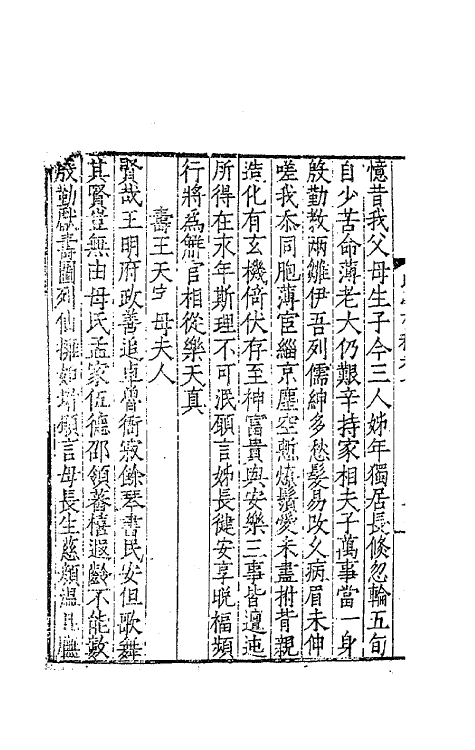 憶昔我父母生子今三人姊年獨居長倏忽輪五旬
自少苦命薄老大仍艱辛持家相夫子萬事當一身
殷勤教兩雛伊吾列儒紳多愁髮易改久病眉未伸
嗟我忝同胞薄宦緇京塵空慙燎鬚愛未盡拊背親
造化有玄機倚伏存至神富貴與安樂三事皆邅迍
所得在永年斯理不可泯願言姊長健安享晚福頻
行將為觧官相從樂天真
壽王天宇母夫人
賢哉王明府政善追卓魯衙寂餘琴書民安但歌舞
其賢豈無由母氏孟家伍德邵領蕃禧遐齡不能數
殷勤獻壽圖列仙擁如堵願言母長生慈顏溫且